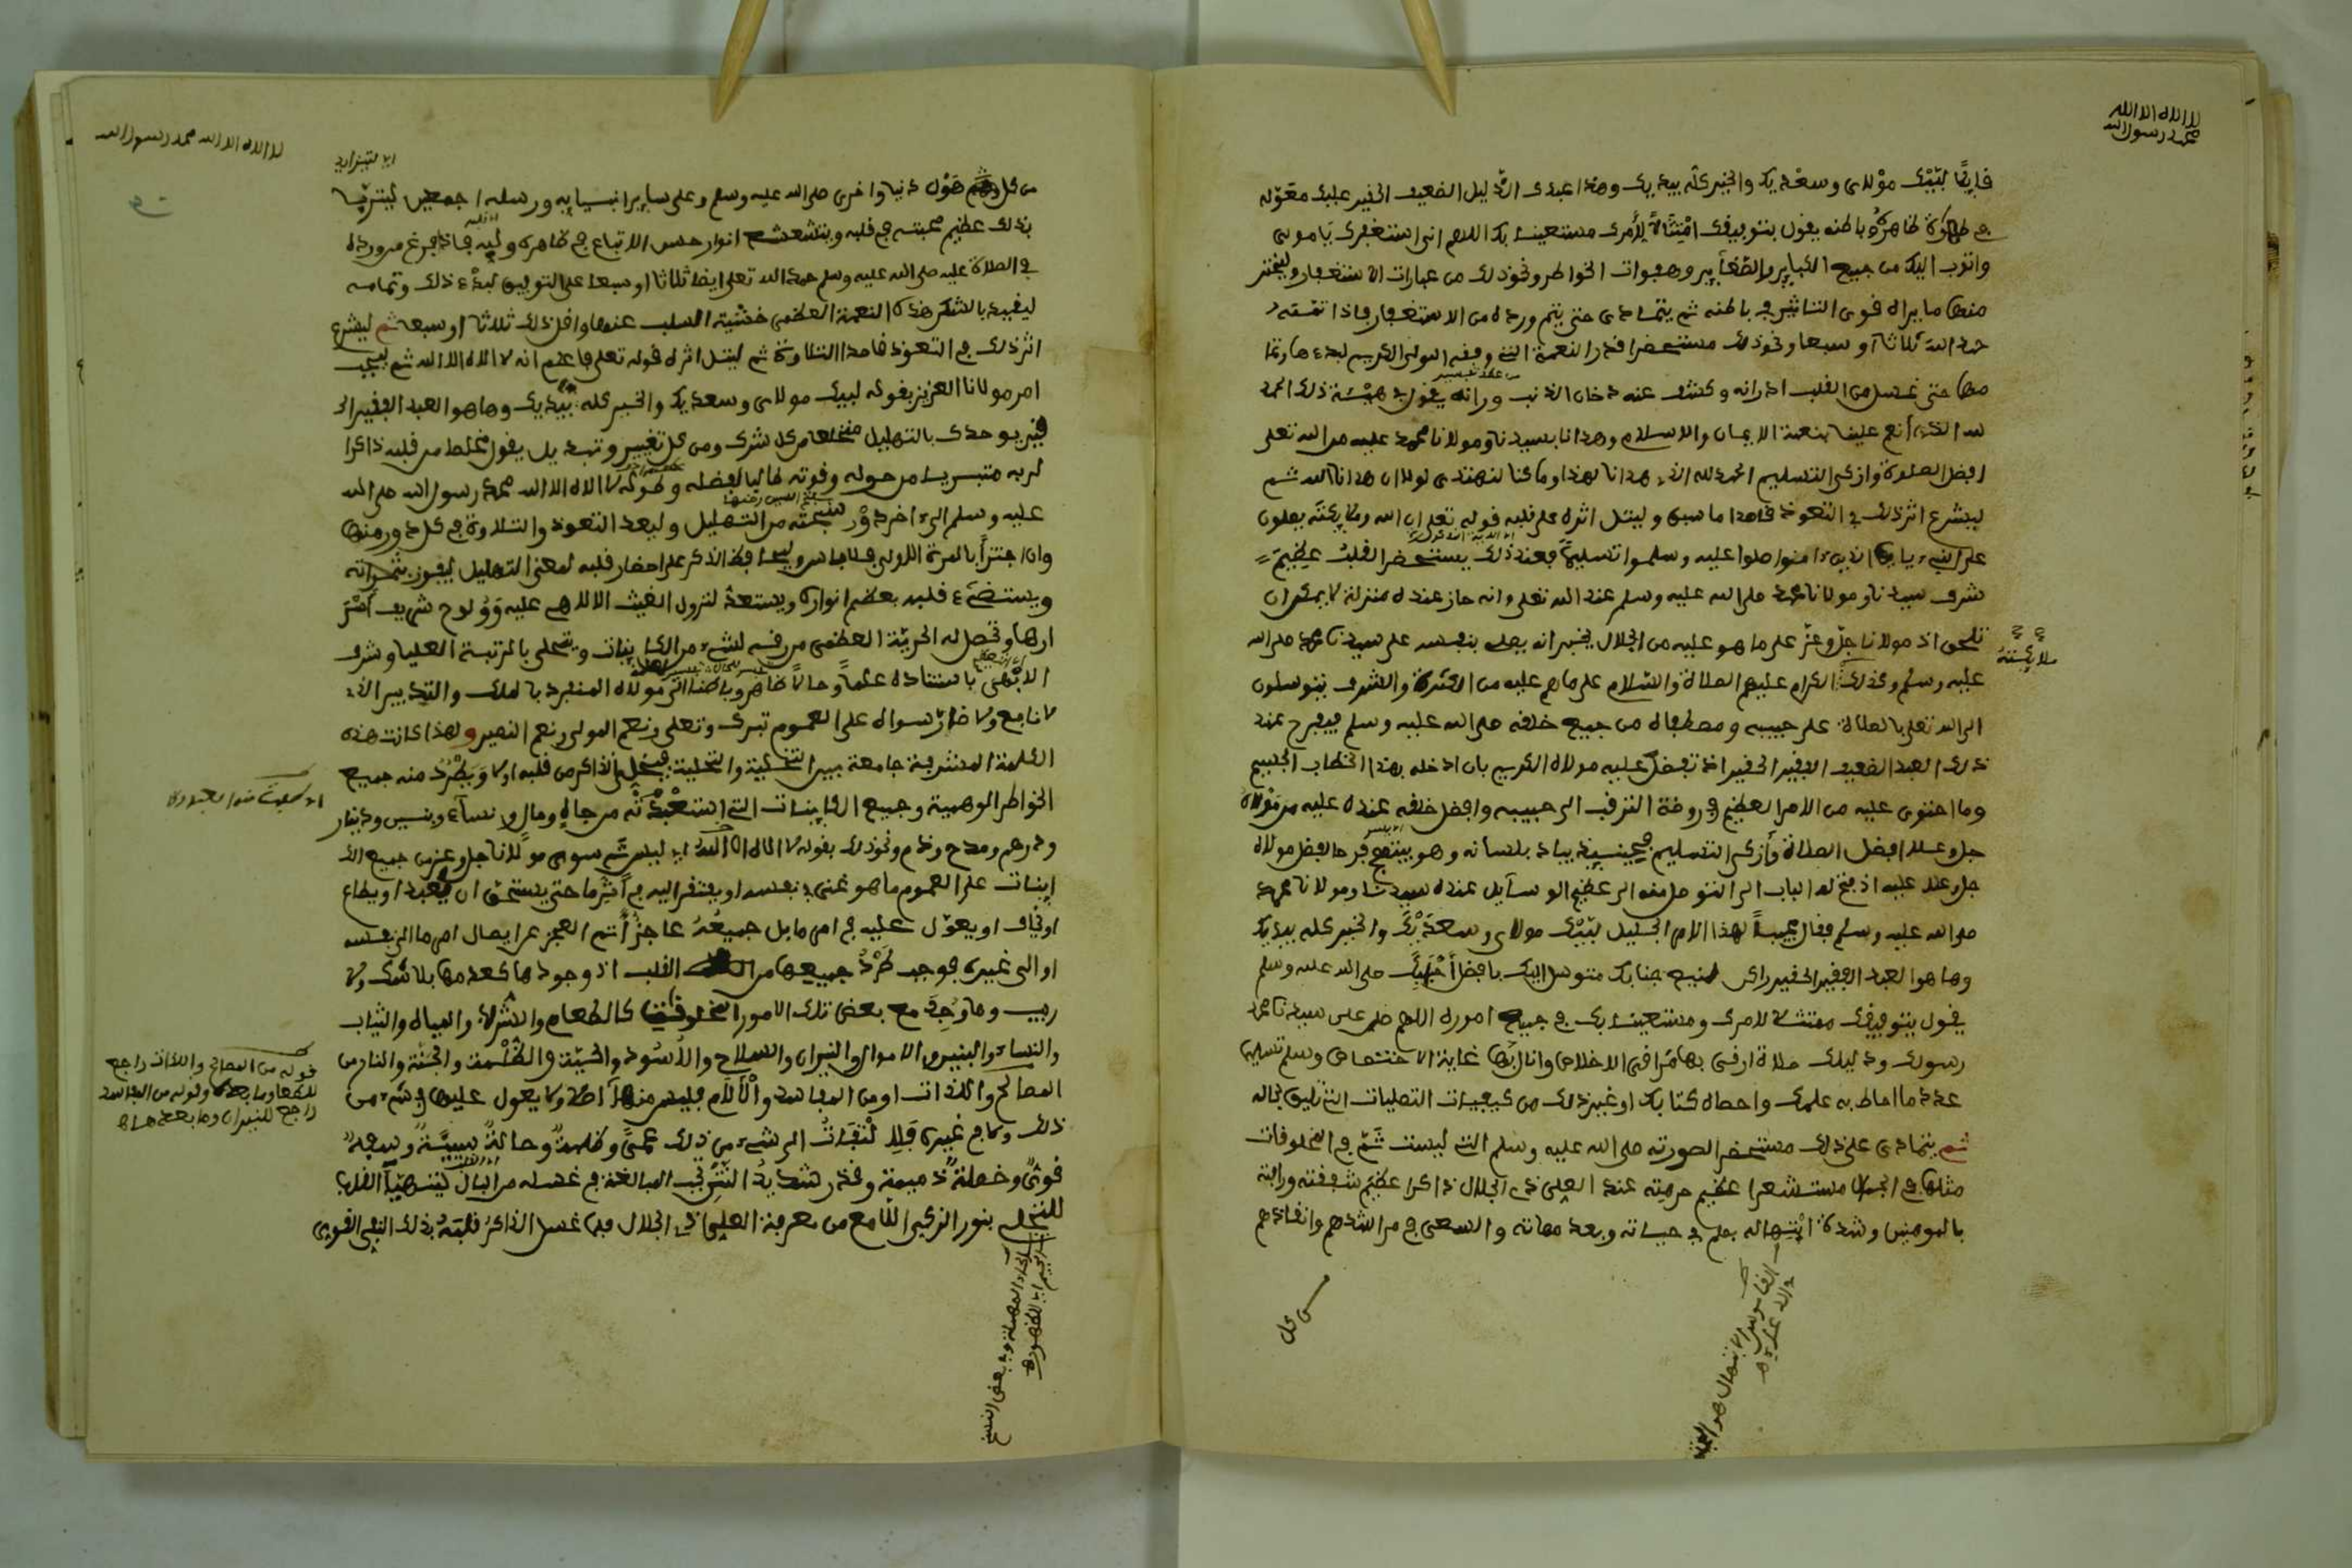 لا اله الا الله
محمد رسول الله
قايلا لبيك مولاى وسعديك والخير كله بيديك وهذا عبدك الذليل الضعيف الحقير عليك معوله
في طهارة ظاهره وباطنه يقول بتوفيقك امتثالا لامرك مستعينا بك اللهم انى استغفرك يا مولاى
واتوب اليك من جميع الكباير والصغاير وهفوات الخواطر ونحو ذلك من عبارات الاستغفار وليختر
منها ما يراه قوى التاثير في باطنه ثم يتمادى حتى يتم ورده من الاستغفار فاذا تممه
حمد الله ثلاثا او سبعا ونحو ذلك مستحضرا قدر النعمة التى وفقه المولى الكريم لبدءها وتما
مها حتى غسل من القلب ادرانه وكشف عنه دخان الذنب ورانه يقول في هيئة ذلك الحمد
لله الذى أنعم علينا بنعمة الايمان والاسلام وهدانا بسيدنا ومولانا محمد عليه من الله تعلى
افضل الصلوة وازكى التسليم الحمد لله الذى هدانا لهذا وما كنا لنهتدى لولا ان هدانا الله ثم
ليشرع اثر ذلك في التعوذ قاصدا ما سبق وليتل اثره على قلبه قوله تعلى ان الله وملايكته يصلون
على النبىء يا ايها الذين ءامنوا صلوا عليه وسلموا تسليما فعند ذلك يستحضر القلب عظيم
شرف سيدنا ومولانا محمد صلى الله عليه وسلم عند الله تعلى وانه حاز عنده منزلة لا يمكن ان
تلحق اذ مولانا جل وعز على ما هو عليه من الجلال يخبر انه يصلى بنفسه على سيدنا محمد صلى الله
عليه وسلم وكذلك الكرام عليهم الصلاة والسلام على ما هم عليه من الكثرة والشرف يتوسلون
ملايكته
الى الله تعلى بالصلاة على حبيبه ومصطفاه من جميع خلقه صلى الله عليه وسلم فيفرح عند
ذلك العبد الضعيف الفقير الحقير اذ تفضل عليه مولاه الكريم بان ادخله بهذا الخطاب الجسيم
وما احتوى عليه من الامر العظيم في روضة التزلف الى حبيبه وافضل خلقه عنده عليه من مولاه
جل وعلا افضل الصلاة وأزكى التسليم فحينئذ يبادر بلسانه وهو يبتهج فرحا بفضل مولاه
جل وعلا عليه اذ فتح له الباب الى التوصل منه الى عظيم الوسايل عنده سيدنا ومولانا محمد
صلى الله عليه وسلم فقال مجيبا لهذا الامر الجليل لبيك مولاى وسعديك والخير كله بيديك
وها هو العبد الفقير الحقير راكن لمنيع جنابك متوسل اليك بافضل أحبابك صلى الله عليه وسلم
يقول بتوفيقك ممتثلا لامرك ومستعينا بك في جميع اموره اللهم صل على سيدنا محمد
رسولك ودليلك صلاة ارقى بها مراقى الاخلاص وانال بها غاية الاختصاص وسلم تسليما
عدد ما احاط به علمك واحصاه كتابك او غير ذلك من كيفيات التصليات التى تليق بحاله
ثم يتمادى على ذلك مستحضرا لصورته صلى الله عليه وسلم التى ليست ثم في المخلوقات
مثلها في الجمال مستشعرا عظيم حرمته عند العلى ذى الجلال ذاكرا عظيم شفقته ورافته
بالمومنين وشدة اهتباله بهم في حياته وبعد مماته والسعى في مراشدهم وانقاذهم
من كل
لا اله الا الله محمد رسول الله
اى لتزايد
من كل هول دنيا واخرى صلى الله عليه وسلم وعلى ساير انبيايه ورسله اجمعين ليتربى
بذلك عظيم محبته في قلبه ويتشعشع انوار حسن الاتباع في ظاهره ولبه فاذا فرغ من ورده
في الصلاة عليه صلى الله عليه وسلم حمد الله تعلى ايضا ثلاثا او سبعا على التوفيق لبدء ذلك وتمامه
ليقيد بالشكر هذه النعمة العظمى خشية السلب عنها واقل ذلك ثلاثا او سبعا ثم ليشرع
اثر ذلك في التعوذ قاصدا التلاوة ثم ليتل اثره قوله تعلى فاعلم انه لا اله الا الله ثم ليجب
امر مولانا العزيز بقوله لبيك مولاى وسعديك والخير كله بيديك وها هو العبد الفقير الحـ
قير يوحدك بالتهليل منخلعا من كل شرك ومن كل تغيير وتبديل يقول مخلصا من قلبه ذاكرا
لربه متبريا من حوله وقوته طالبا لفضله وطوله لا اله الا الله محمد رسول الله صلى الله
عليه وسلم الى اخر دور سبحته من التهليل وليعد التعوذ والتلاوة في كل دور منها
وان اجتزأ بالمرة الاولى فلا باس وليحافظ الذاكر على احضار قلبه لمعنى التهليل ليفوز بثمراته
ويستضىء قلبه بعظيم انواره ويستعد لنزول الغيث الالهى عليه وولوح شريف أسر
ارها وتحصل له الحرية العظمى من رق لشىء من الكاينات ويتحلى بالمرتبة العليا وشرف
الابهى باستناده علما وحالا ظاهرا وباطنا الى مولاه المنفرد بالملك والتدبير الذى
لا نافع ولا ضار سواه على العموم تبرك وتعلى ونعم المولى ونعم النصير ولهذا كانت هذه
الكلمة المشرفة جامعة بين التخلية والتحلية فيخلى الذاكر من قلبه اولا ويطرد منه جميع
الخواطر الوهمية وجميع الكاينات التى استعبدته من جاه ومال ونساء وبنين ودينار
ودرهم ومدح وذم ونحو ذلك بقوله لا اله الا الله اى ليس ثم سوى مولانا جل وعز من جميع الكا
اينات على العموم ما هو غنى بنفسه او يفتقر اليه في أثر ما حتى يستحق ان يعبد او يطاع
او يخاف او يعول عليه في امر ما بل جميعه عاجز أتم العجز عن ايصال امر ما الى نفسه
او الى غيره فوجب طرد جميعها من القلب اذ وجودها كعدمها بلا شك ولا
ريب وما وجد مع بعض تلك الامور المخلوقة كالطعام والاشربة والمياه والثياب
والنساء والبنين والاموال والنيران والسلاح والأسود والحية والظلمة والجنة والنار من
المصالح واللذات او من المفاسد والآلام فليس منها أصلا ولا يعول عليها في شىء من
ذلك ولا في غيره فالالتفات الى شىء من ذلك عمى وظلمة وحالة سيية وبدعة
قوى وخصلة ذميمة وقذر شديد النتن يجب المبالغة في غسله من البال ليتهيأ القلب
للتحلى بنور الزكى اللامع من معرفة العلى ذى الجلال فلما غسل الذاكر قلبه بذلك النفى القوى
قوله من المصالح واللذات راجع
للطعام وما بعده وقوله من المفاسد
راجع للنيران وما بعدها